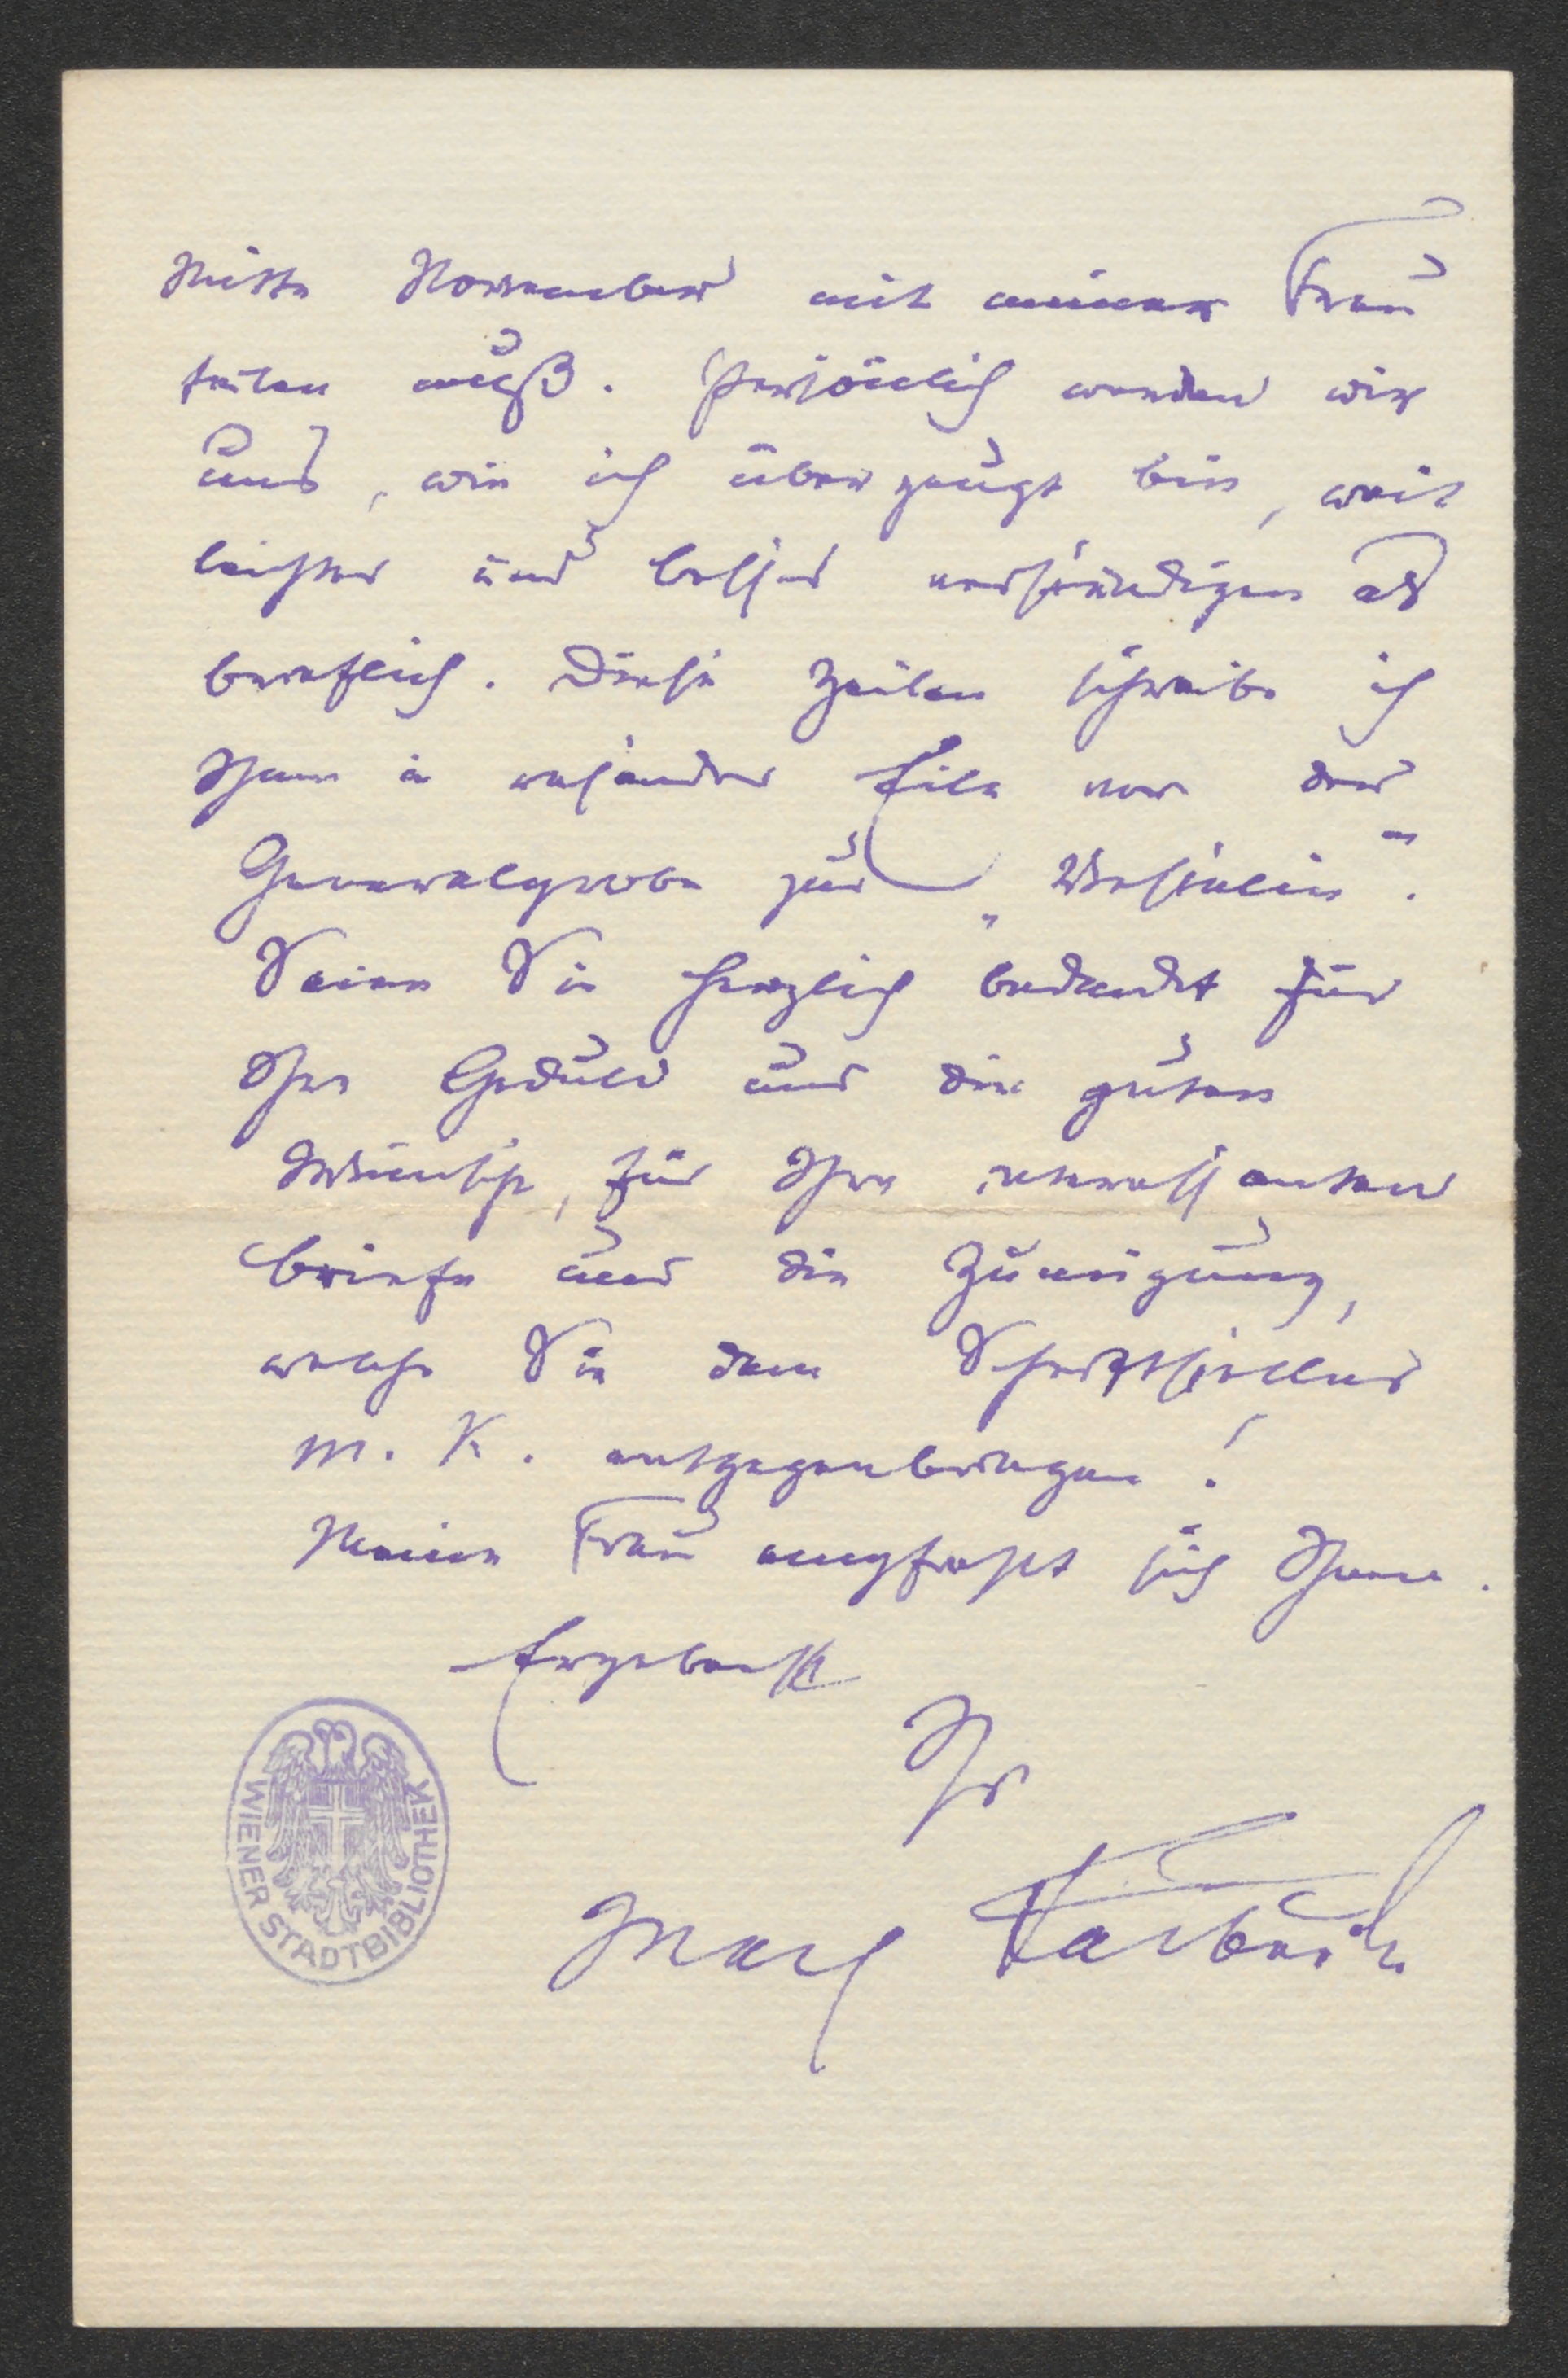 Mitte November mit meiner Frau
teilen muß. Persönlich werden wir
uns, wie ich überzeugt bin, weit
leichter und besser verständigen als
brieflich. Diese Zeilen schreibe ich
Ihnen in rasender Eile vor der
Generalprobe zur „Vestalin“.
Seien Sie herzlich bedankt für
Ihre Geduld und die guten
Wünsche, für Ihre interessanten
Briefe und die Zuneigung,
welche Sie dem Schriftsteller
M. K. entgegenbringen!
Meine Frau empfiehlt sich Ihnen.
Ergebenst
Ihr
Max Kalbeck
WIENER STADTBIBLIOTHEK